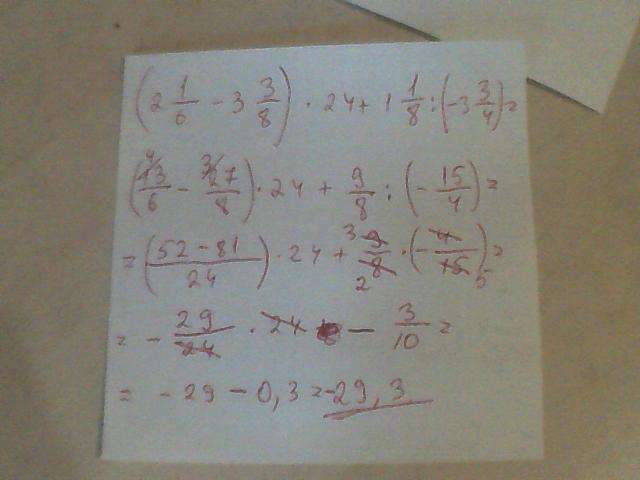 (2 1/6 - 3 3/8) · 24 + 1 1/8 : (-3 3/4) =
(13/6 - 27/8) · 24 + 9/8 : (-15/4) =
= (52 - 81 / 24) · 24 + 9/8 · (-4/15) =
= - 29/24 · 24 - 3/10 =
= - 29 - 0,3 = -29,3